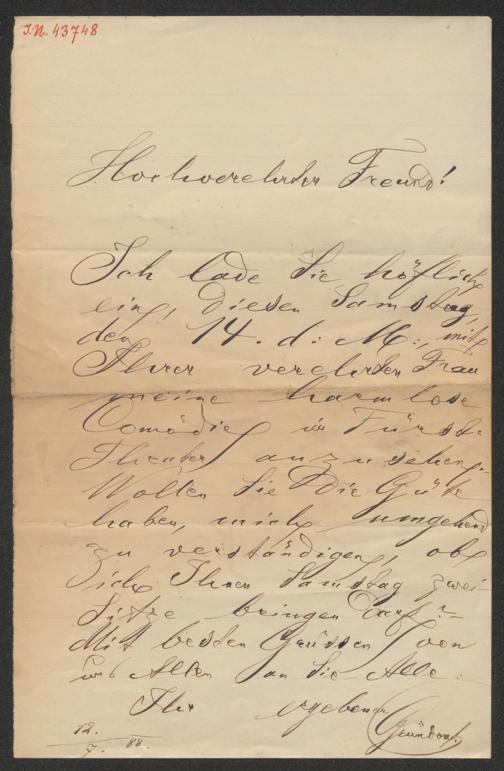 J.N. 43748
Hochverehrter Freund!
Ich lade Sie höflich
ein, diesen Samstag,
den 14. d. M., mit
Ihrer verehrten Frau
meine harmlose
Comödie im Fürst-
Theater anzusehen.
Wollen Sie die Güte
haben, mich umgehend
zu verständigen, ob
ich Ihnen Samstag zwei
Sitze bringen darf? –
Mit besten Grüssen von
uns Allen an Sie Alle
Ihr ergebener
Gründorf
12.
7. 88.